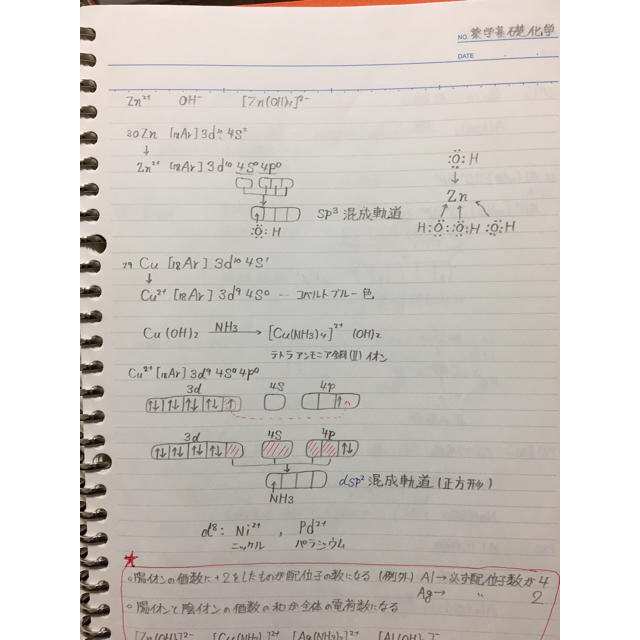 NO. 薬学基礎化学
DATE
Zn²⁺ OH⁻ [Zn(OH)₄]²⁻
₃₀Zn [₁₈Ar] 3d¹⁰ 4S²
↓
Zn²⁺ [₁₈Ar] 3d¹⁰ 4S⁰ 4p⁰
SP³ 混成軌道
:Ö: H
:Ö: H
↓
Zn
H:Ö: :Ö:H :Ö:H
₂₉Cu [₁₈Ar] 3d¹⁰ 4S¹
↓
Cu²⁺ [₁₈Ar] 3d⁹ 4S⁰ … コバルトブルー色
Cu(OH)₂ NH₃→ [Cu(NH₃)₄]²⁺ (OH)₂
テトラアンモニア銅(Ⅱ)イオン
Cu²⁺ [₁₈Ar] 3d⁹ 4S⁰ 4p⁰
3d 4S 4p
↑↓ ↑↓ ↑↓ ↑↓ ↑ ↑
3d 4S 4p
↑↓ ↑↓ ↑↓ ↑↓ ↑↓
dSp² 混成軌道 (正方形)
NH₃
d⁸: Ni²⁺ , Pd²⁺
ニッケル パラジウム
★
○陽イオンの価数に+2をしたものが配位子の数になる (例外) Al→必ず配位子数が4
Ag→ 〃 2
○陽イオンと陰イオンの価数の和が全体の電荷数になる
[Zn(OH)₄]²⁻ [Cu(NH₃)₄]²⁺ [Ag(NH₃)₂]²⁺ [Al(OH)₄]⁻